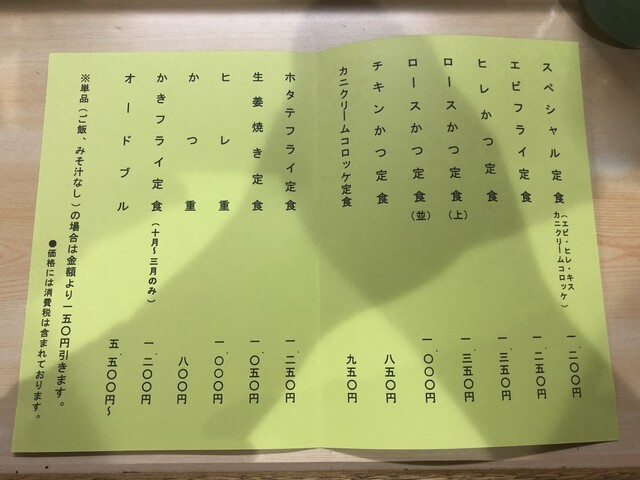 スペシャル定食(エビ・ヒレ・キス カニクリームコロッケ) 一、二〇〇円
エビフライ定食 一、二五〇円
ヒレかつ定食 一、三五〇円
ロースかつ定食(上) 一、三五〇円
ロースかつ定食(並) 一、〇〇〇円
チキンかつ定食 八五〇円
カニクリームコロッケ定食 九五〇円
ホタテフライ定食 一、二五〇円
生姜焼き定食 一、〇五〇円
ヒレ重 一、〇〇〇円
かつ重 八〇〇円
かきフライ定食(十月～三月のみ) 一、二〇〇円
オードブル 五、五〇〇円～
※単品(ご飯、みそ汁なし)の場合は金額より一五〇円引きます。
●価格には消費税は含まれております。